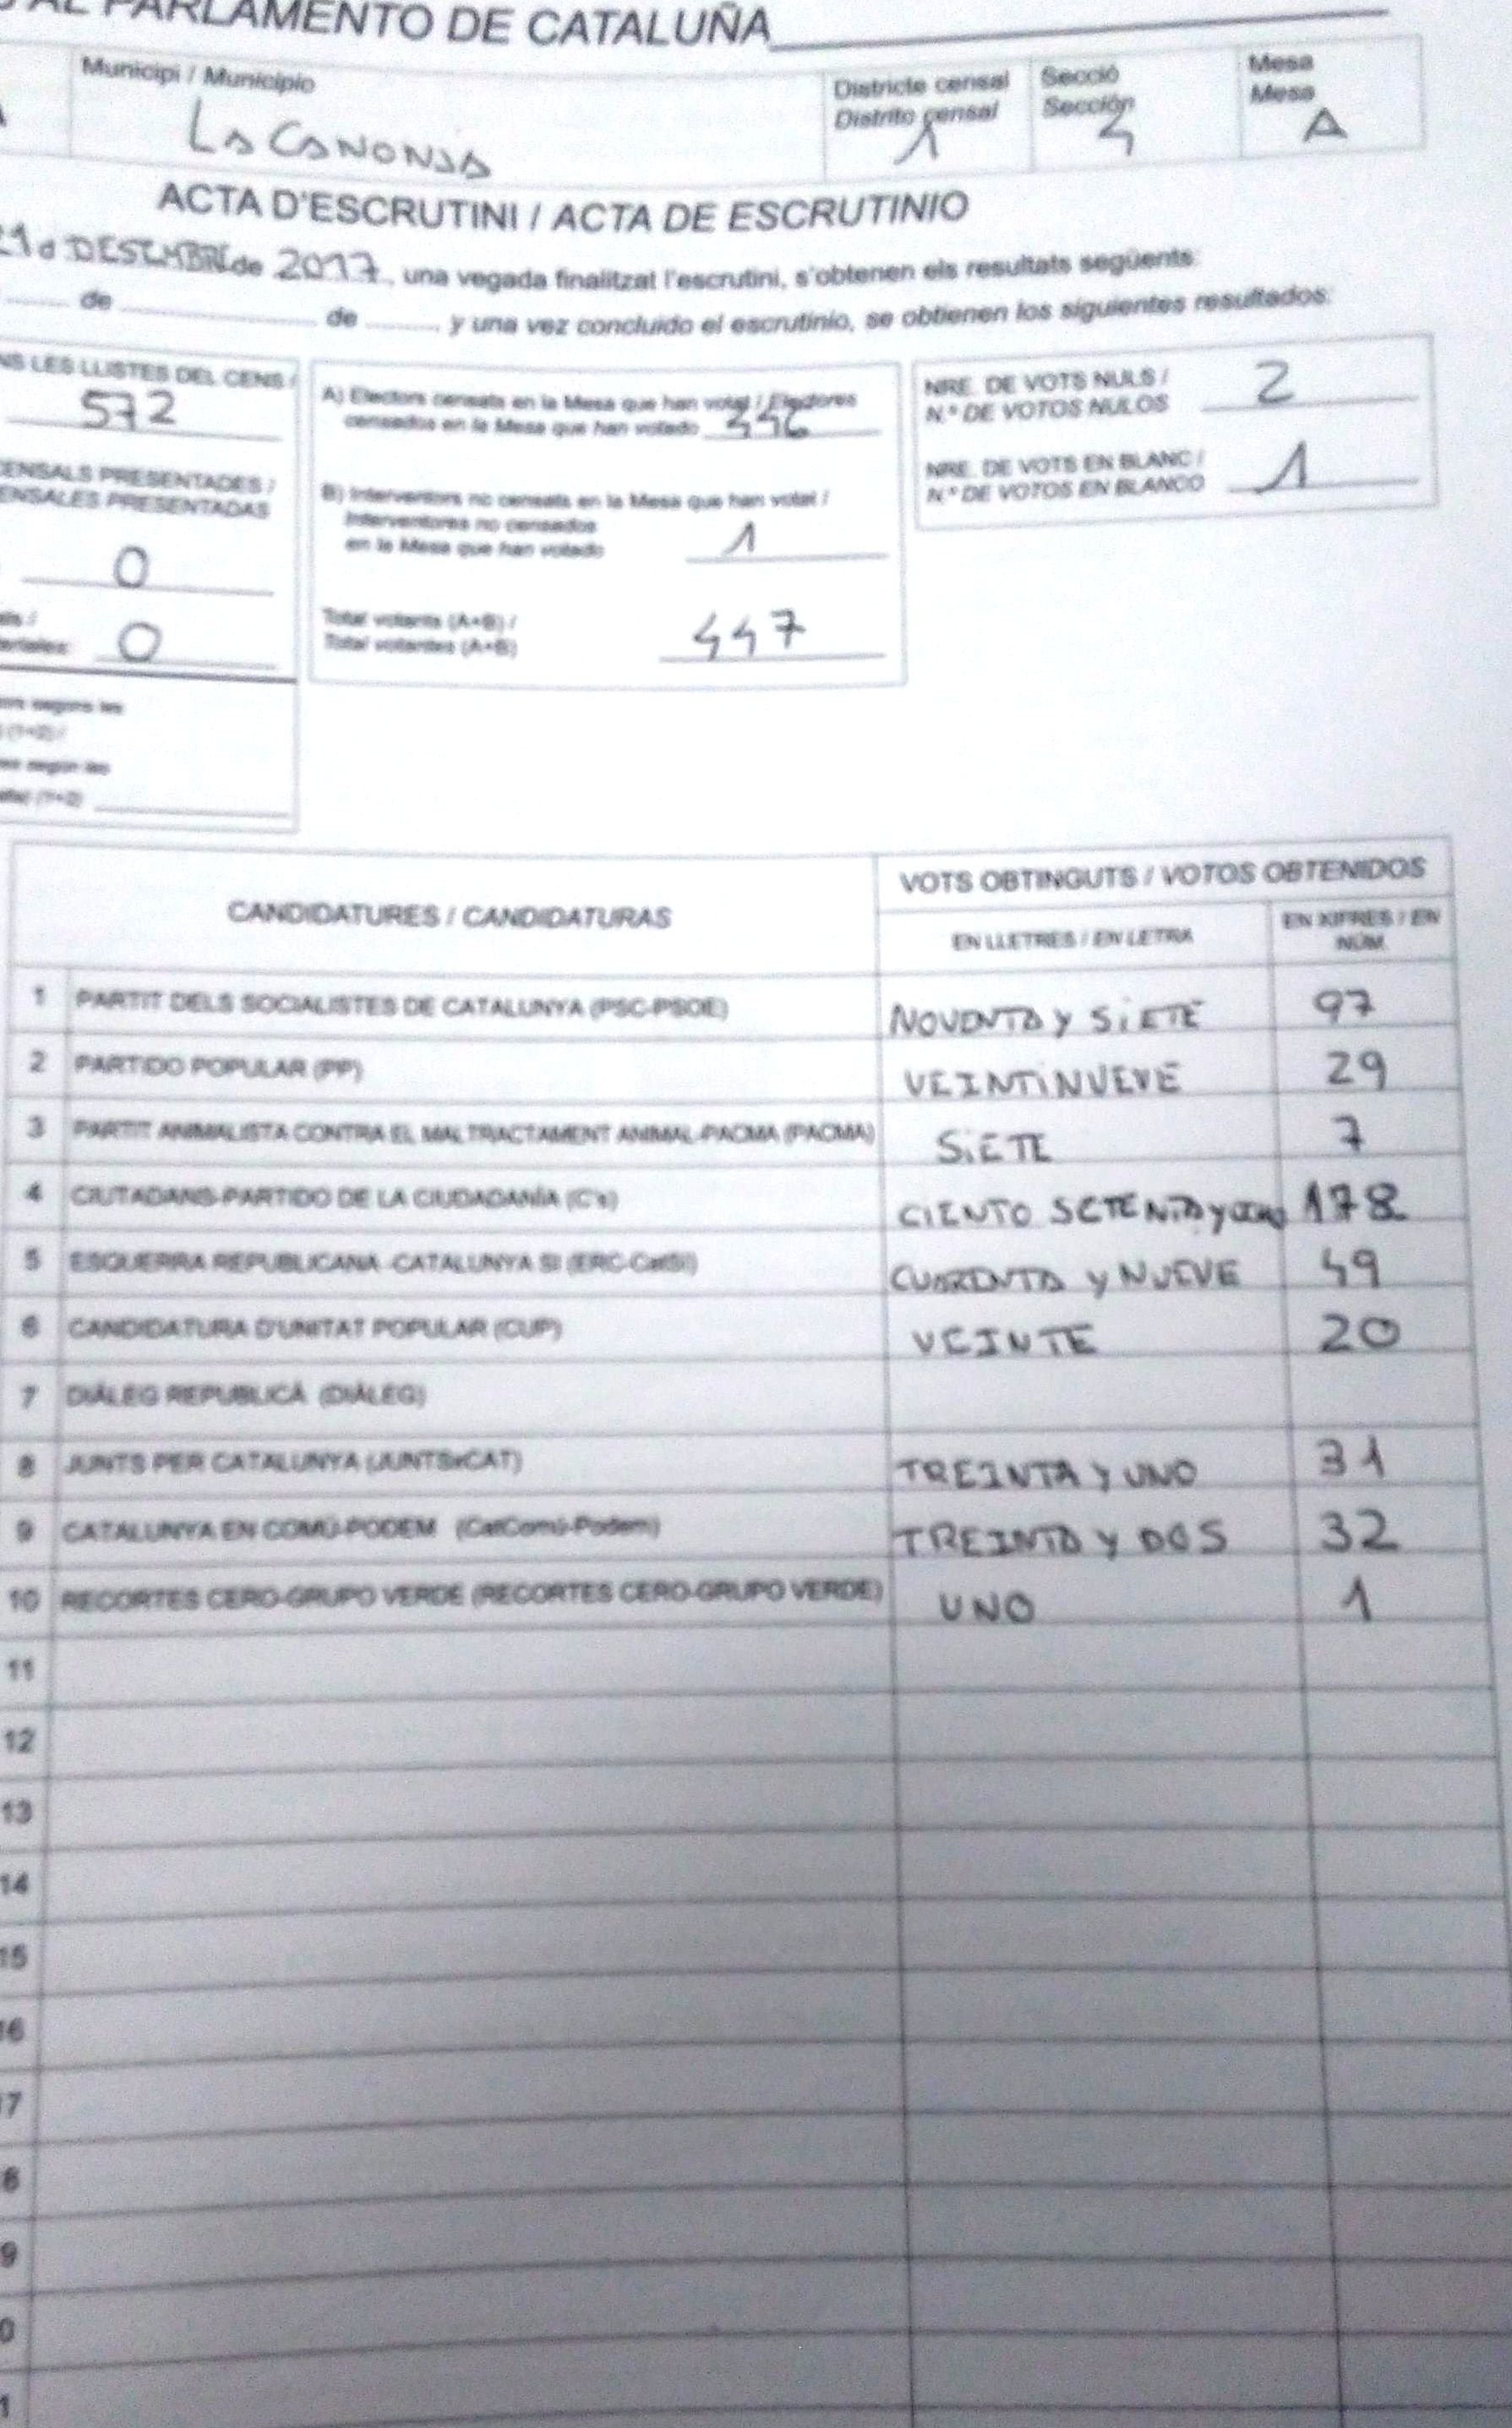 AL PARLAMENTO DE CATALUÑA
Municipi / Municipio
LA CANONJA
Districte censal
Distrito censal
1
Secció
Sección
4
Mesa
Mesa
A
ACTA D'ESCRUTINI / ACTA DE ESCRUTINIO
21 d DESEMBRE de 2017, una vegada finalitzat l'escrutini, s'obtenen els resultats següents:
de de , y una vez concluido el escrutinio, se obtienen los siguientes resultados:
LES LLISTES DEL CENS /
572
PRESENTADES /
PRESENTADAS
0
0
segons les
(1+2) /
según las
(1+2)
A) Electors censats en la Mesa que han votat / Electores
censados en la Mesa que han votado 446
B) Interventors no censats en la Mesa que han votat /
Interventores no censados
en la Mesa que han votado 1
Total votants (A+B) /
Total votantes (A+B) 447
NRE. DE VOTS NULS /
N.º DE VOTOS NULOS 2
NRE. DE VOTS EN BLANC /
N.º DE VOTOS EN BLANCO 1
CANDIDATURES / CANDIDATURAS
VOTS OBTINGUTS / VOTOS OBTENIDOS
EN LLETRES / EN LETRA
EN XIFRES / EN
NÚM.
1 PARTIT DELS SOCIALISTES DE CATALUNYA (PSC-PSOE) NOVENTA y SIETE 97
2 PARTIDO POPULAR (PP) VEINTINUEVE 29
3 PARTIT ANIMALISTA CONTRA EL MALTRACTAMENT ANIMAL-PACMA (PACMA) SIETE 7
4 CIUTADANS-PARTIDO DE LA CIUDADANÍA (C's) CIENTO SETENTA y OCHO 178
5 ESQUERRA REPUBLICANA-CATALUNYA SÍ (ERC-CatSí) CUARENTA y NUEVE 49
6 CANDIDATURA D'UNITAT POPULAR (CUP) VEINTE 20
7 DIÀLEG REPUBLICÀ (DIÀLEG)
8 JUNTS PER CATALUNYA (JUNTSxCAT) TREINTA y UNO 31
9 CATALUNYA EN COMÚ-PODEM (CatComú-Podem) TREINTA y DOS 32
10 RECORTES CERO-GRUPO VERDE (RECORTES CERO-GRUPO VERDE) UNO 1
11
12
13
14
15
16
7
8
9
0
1